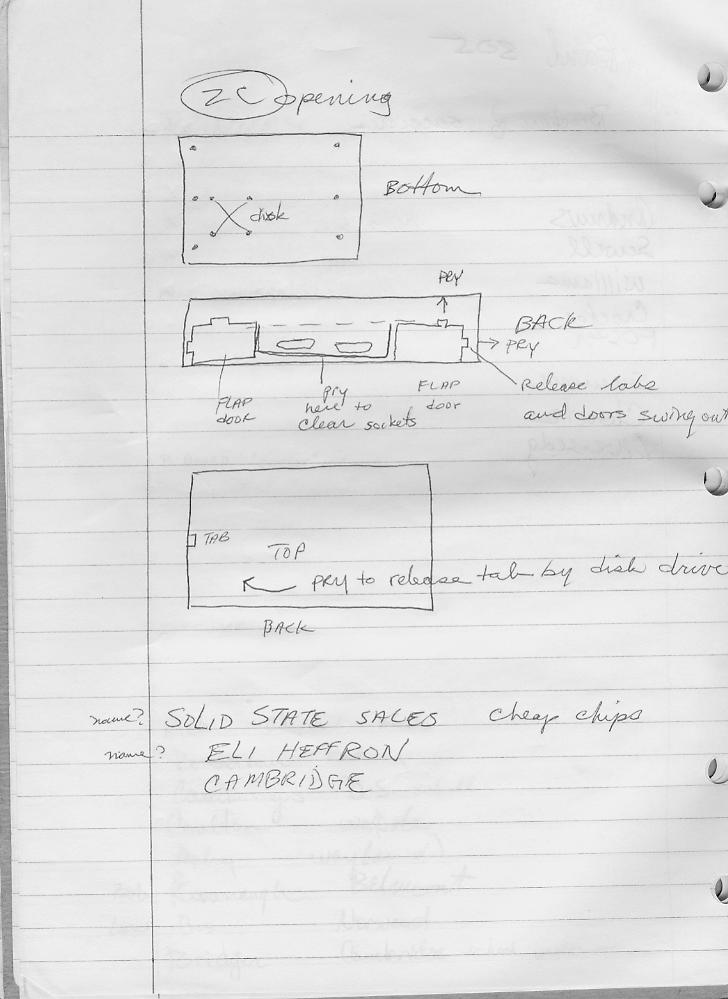 2C opening
Bottom
disk
PRY
BACK
PRY
FLAP
door
pry
here to
clear sockets
FLAP
door
Release tabs
and doors swing out
TAB
TOP
PRY to release tab by disk drive
BACK
name? SOLID STATE SALES cheap chips
name? ELI HEFFRON
CAMBRIDGE